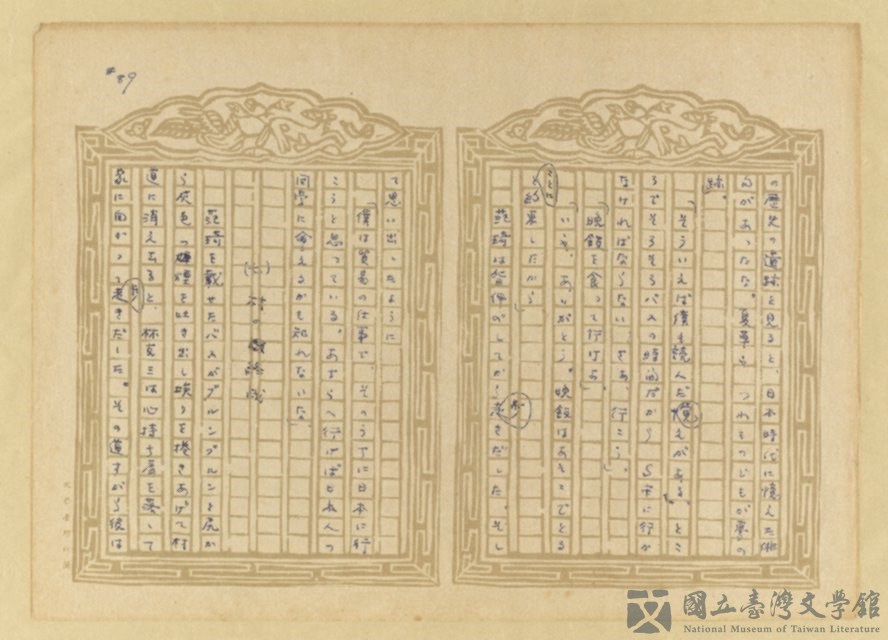 #89
の歴史の遺跡を見ると、日本時代に憶えた俳
句があったな。夏草や つわものどもが夢の
跡。
「そういえば僕も読んだ覚えがある」とこ
ろでそろそろバスの時間だから 行か
なければならない。さあ、行こう」。
「晩飯を食って行けよ」
「いや、ありがとう。晩飯はあそこでとる
と約束したから」
て思い出したように
「僕は貿易の仕事で、そのうちに日本に行
こうと思っている。あちらへ行けば日本人の
同学に会えるかも知れないな」
(七) 村の
を載せたバスがブルンブルンと尻か
ら灰色の煙を吐き出し埃りを捲きあげて村
道に消えさると、林 は心持ち肩を落して
家に向かって歩きだした。その道すがら彼は
國立臺灣文學館
National Museum of Taiwan Literature